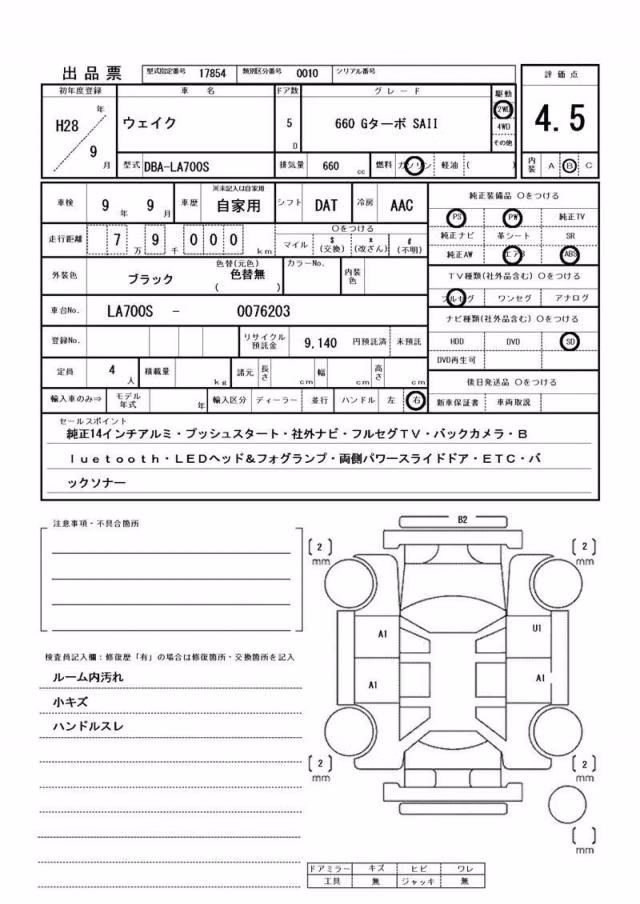 出品票 型式指定番号 17854 類別区分番号 0010 シリアル番号
評価点
初年度登録 車名 ドア数 グレード 駆動
H28 年 9 月 ウェイク 5 D 660 Gターボ SAII 2WD 4WD その他 4.5
型式 DBA-LA700S 排気量 660 cc 燃料 ガソリン 軽油 ( ) 内装 A B C
車検 9 年 9 月 車歴 ※未記入は自家用 自家用 シフト DAT 冷房 AAC 純正装備品 ○をつける
PS PW 純正TV
走行距離 7 万 9 千 0 0 0 km ○をつける マイル $ (交換) * (改ざん) # (不明) 純正ナビ 革シート SR
純正AW エアB ABS
外装色 ブラック 色替(元色) 色替無 ( ) カラーNo. 内装色 TV種類(社外品含む) ○をつける
フルセグ ワンセグ アナログ
車台No. LA700S - 0076203 ナビ種類(社外品含む) ○をつける
登録No. リサイクル預託金 9.140 円預託済 未預託 HDD DVD SD
DVD再生可
定員 4 人 積載量 kg 諸元 長さ cm 幅 cm 高さ cm 後日発送品 ○をつける
輸入車のみ⇒ モデル年式 年 輸入区分 ディーラー 並行 ハンドル 左 右 新車保証書 車両取説
セールスポイント
純正14インチアルミ・プッシュスタート・社外ナビ・フルセグTV・バックカメラ・B
luetooth・LEDヘッド&フォグランプ・両側パワースライドドア・ETC・バ
ックソナー
注意事項・不具合箇所
B2
[2] mm [2] mm
A1 U1
検査員記入欄:修復歴「有」の場合は修復箇所・交換箇所を記入
ルーム内汚れ
A1 A1
小キズ
ハンドルスレ
[2] mm [2] mm
[ ] mm
ドアミラー キズ ヒビ ワレ
工具 無 ジャッキ 無